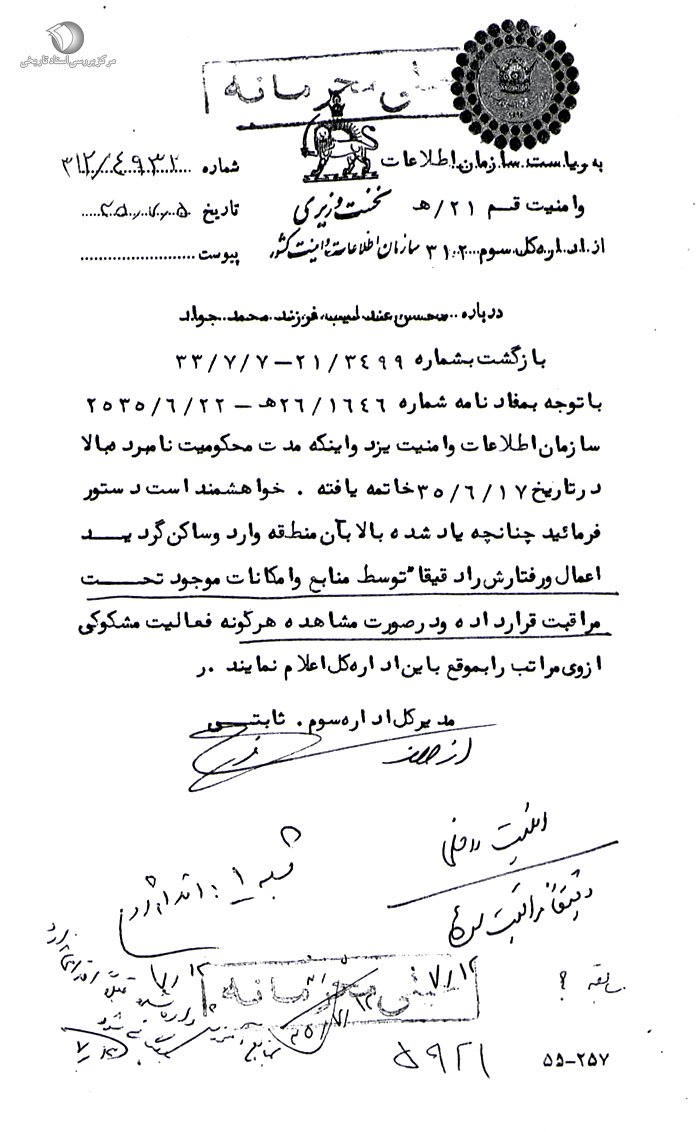 مرکز بررسی اسناد تاریخی
خیلی محرمانه
به ریاست سازمان اطلاعات
شماره ۳۱۲/۴۹۳۲
و امنیت قم ۲۱/ه
نخست وزیری
تاریخ ۳۵/۷/۵
از اداره کل سوم ۳۱۲
سازمان اطلاعات و امنیت کشور
پیوست
درباره محسن عندلیب فرزند محمد جواد
بازگشت بشماره ۲۱/۳۴۹۹–۳۳/۷/۷
با توجه بمفاد نامه شماره ۲۶/۱۶۴۶ه – ۲۵۳۵/۶/۲۲
سازمان اطلاعات و امنیت یزد و اینکه مدت محکومیت نامبرده بالا
در تاریخ ۳۵/۶/۱۷ خاتمه یافته . خواهشمند است دستور
فرمائید چنانچه یاد شده بالا بآن منطقه وارد و ساکن گردید
اعمال و رفتارش را دقیقا" توسط منابع و امکانات موجود تحت
مراقبت قرار داده و در صورت مشاهده هرگونه فعالیت مشکوکی
از وی مراتب را بموقع باین اداره کل اعلام نمایند . ر
مدیر کل اداره سوم . ثابتی
از طرف
امنیت داخلی
دقیقاً مراقبت
شعبه ۱ :
۷/۱۲
۷/۱۲
خیلی محرمانه
سابقه ؟
۵۹۲۱
۵۵-۲۵۷